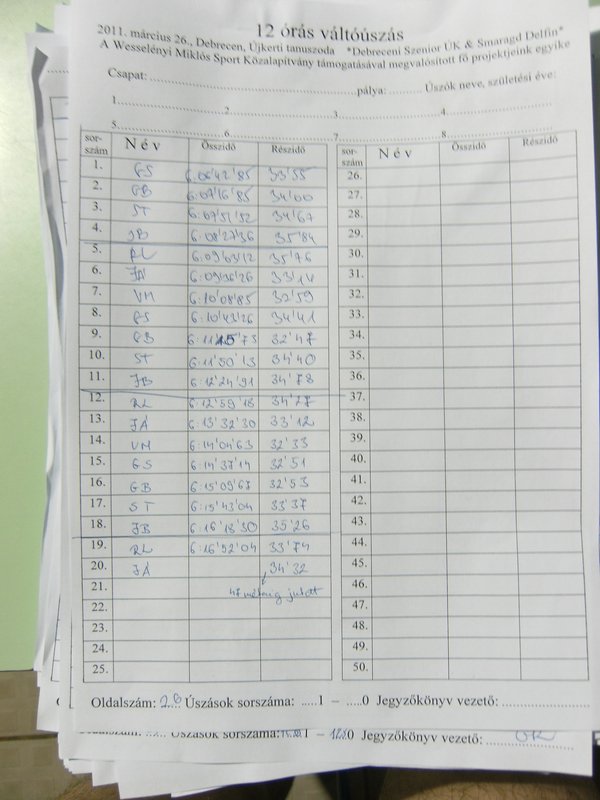 12 órás váltóúszás
2011. március 26., Debrecen, Újkerti tanuszoda *Debreceni Szenior ÚK & Smaragd Delfin*
A Wesselényi Miklós Sport Közalapítvány támogatásával megvalósított fő projektjeink egyike
Csapat: pálya: Úszók neve, születési éve:
1. 2. 3. 4.
5. 6. 7. 8.
sor-szám Név Összidő Részidő sor-szám Név Összidő Részidő
1. GS 6:06'42'85 33'55 26.
2. GB 6:07'16'85 34'00 27.
3. ST 6:07'51'52 34'67 28.
4. JB 6:08'27'36 35'84 29.
5. RL 6:09'03'12 35'76 30.
6. JÁ 6:09'36'26 33'14 31.
7. VM 6:10'08'85 32'59 32.
8. GS 6:10'43'26 34'41 33.
9. GB 6:11'15'73 32'47 34.
10. ST 6:11'50'13 34'40 35.
11. JB 6:12'24'91 34'78 36.
12. RL 6:12'59'18 34'27 37.
13. JÁ 6:13'32'30 33'12 38.
14. VM 6:14'04'63 32'33 39.
15. GS 6:14'37'14 32'51 40.
16. GB 6:15'09'67 32'53 41.
17. ST 6:15'43'04 33'37 42.
18. JB 6:16'18'30 35'26 43.
19. RL 6:16'52'04 33'74 44.
20. JÁ 34'32 45.
21. jutott 46.
22. 47.
23. 48.
24. 49.
25. 50.
Oldalszám: 28 Úszások sorszáma: 1 – 0 Jegyzőkönyv vezető:
Oldalszám: Úszások sorszáma: 1 – 0 Jegyzőkönyv vezető: